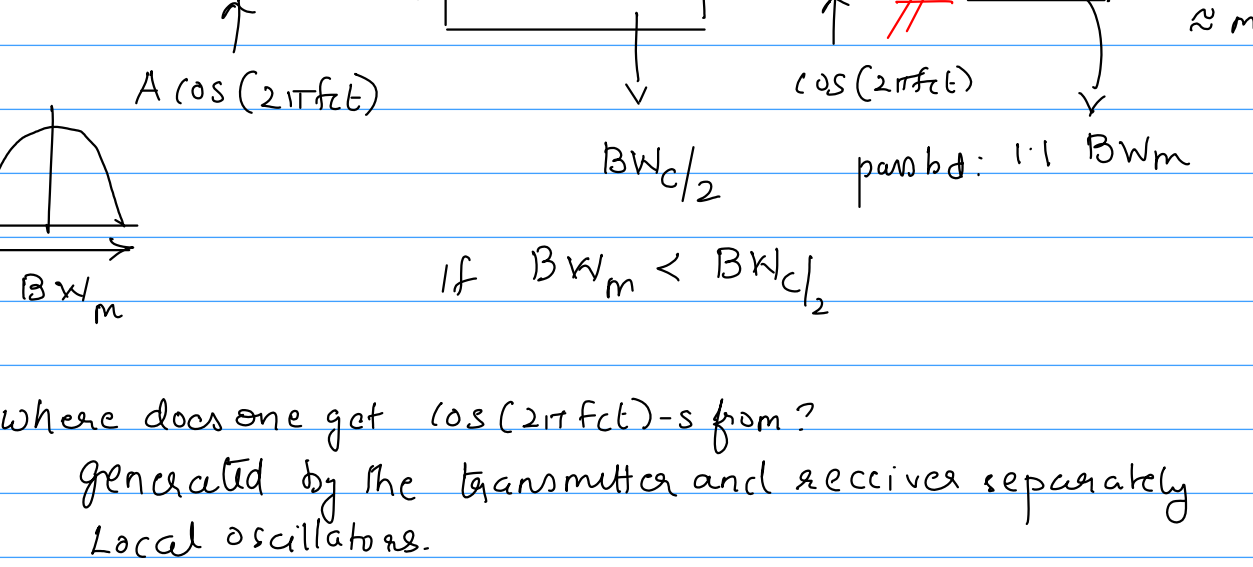 ≈ m
A cos(2πfct)
cos(2πfct)
BWc/2
passbd: 1.1 BWm
BWm
If BWm < BWc/2
where does one get cos(2πfct)-s from?
generated by the transmitter and receiver separately
Local oscillators.